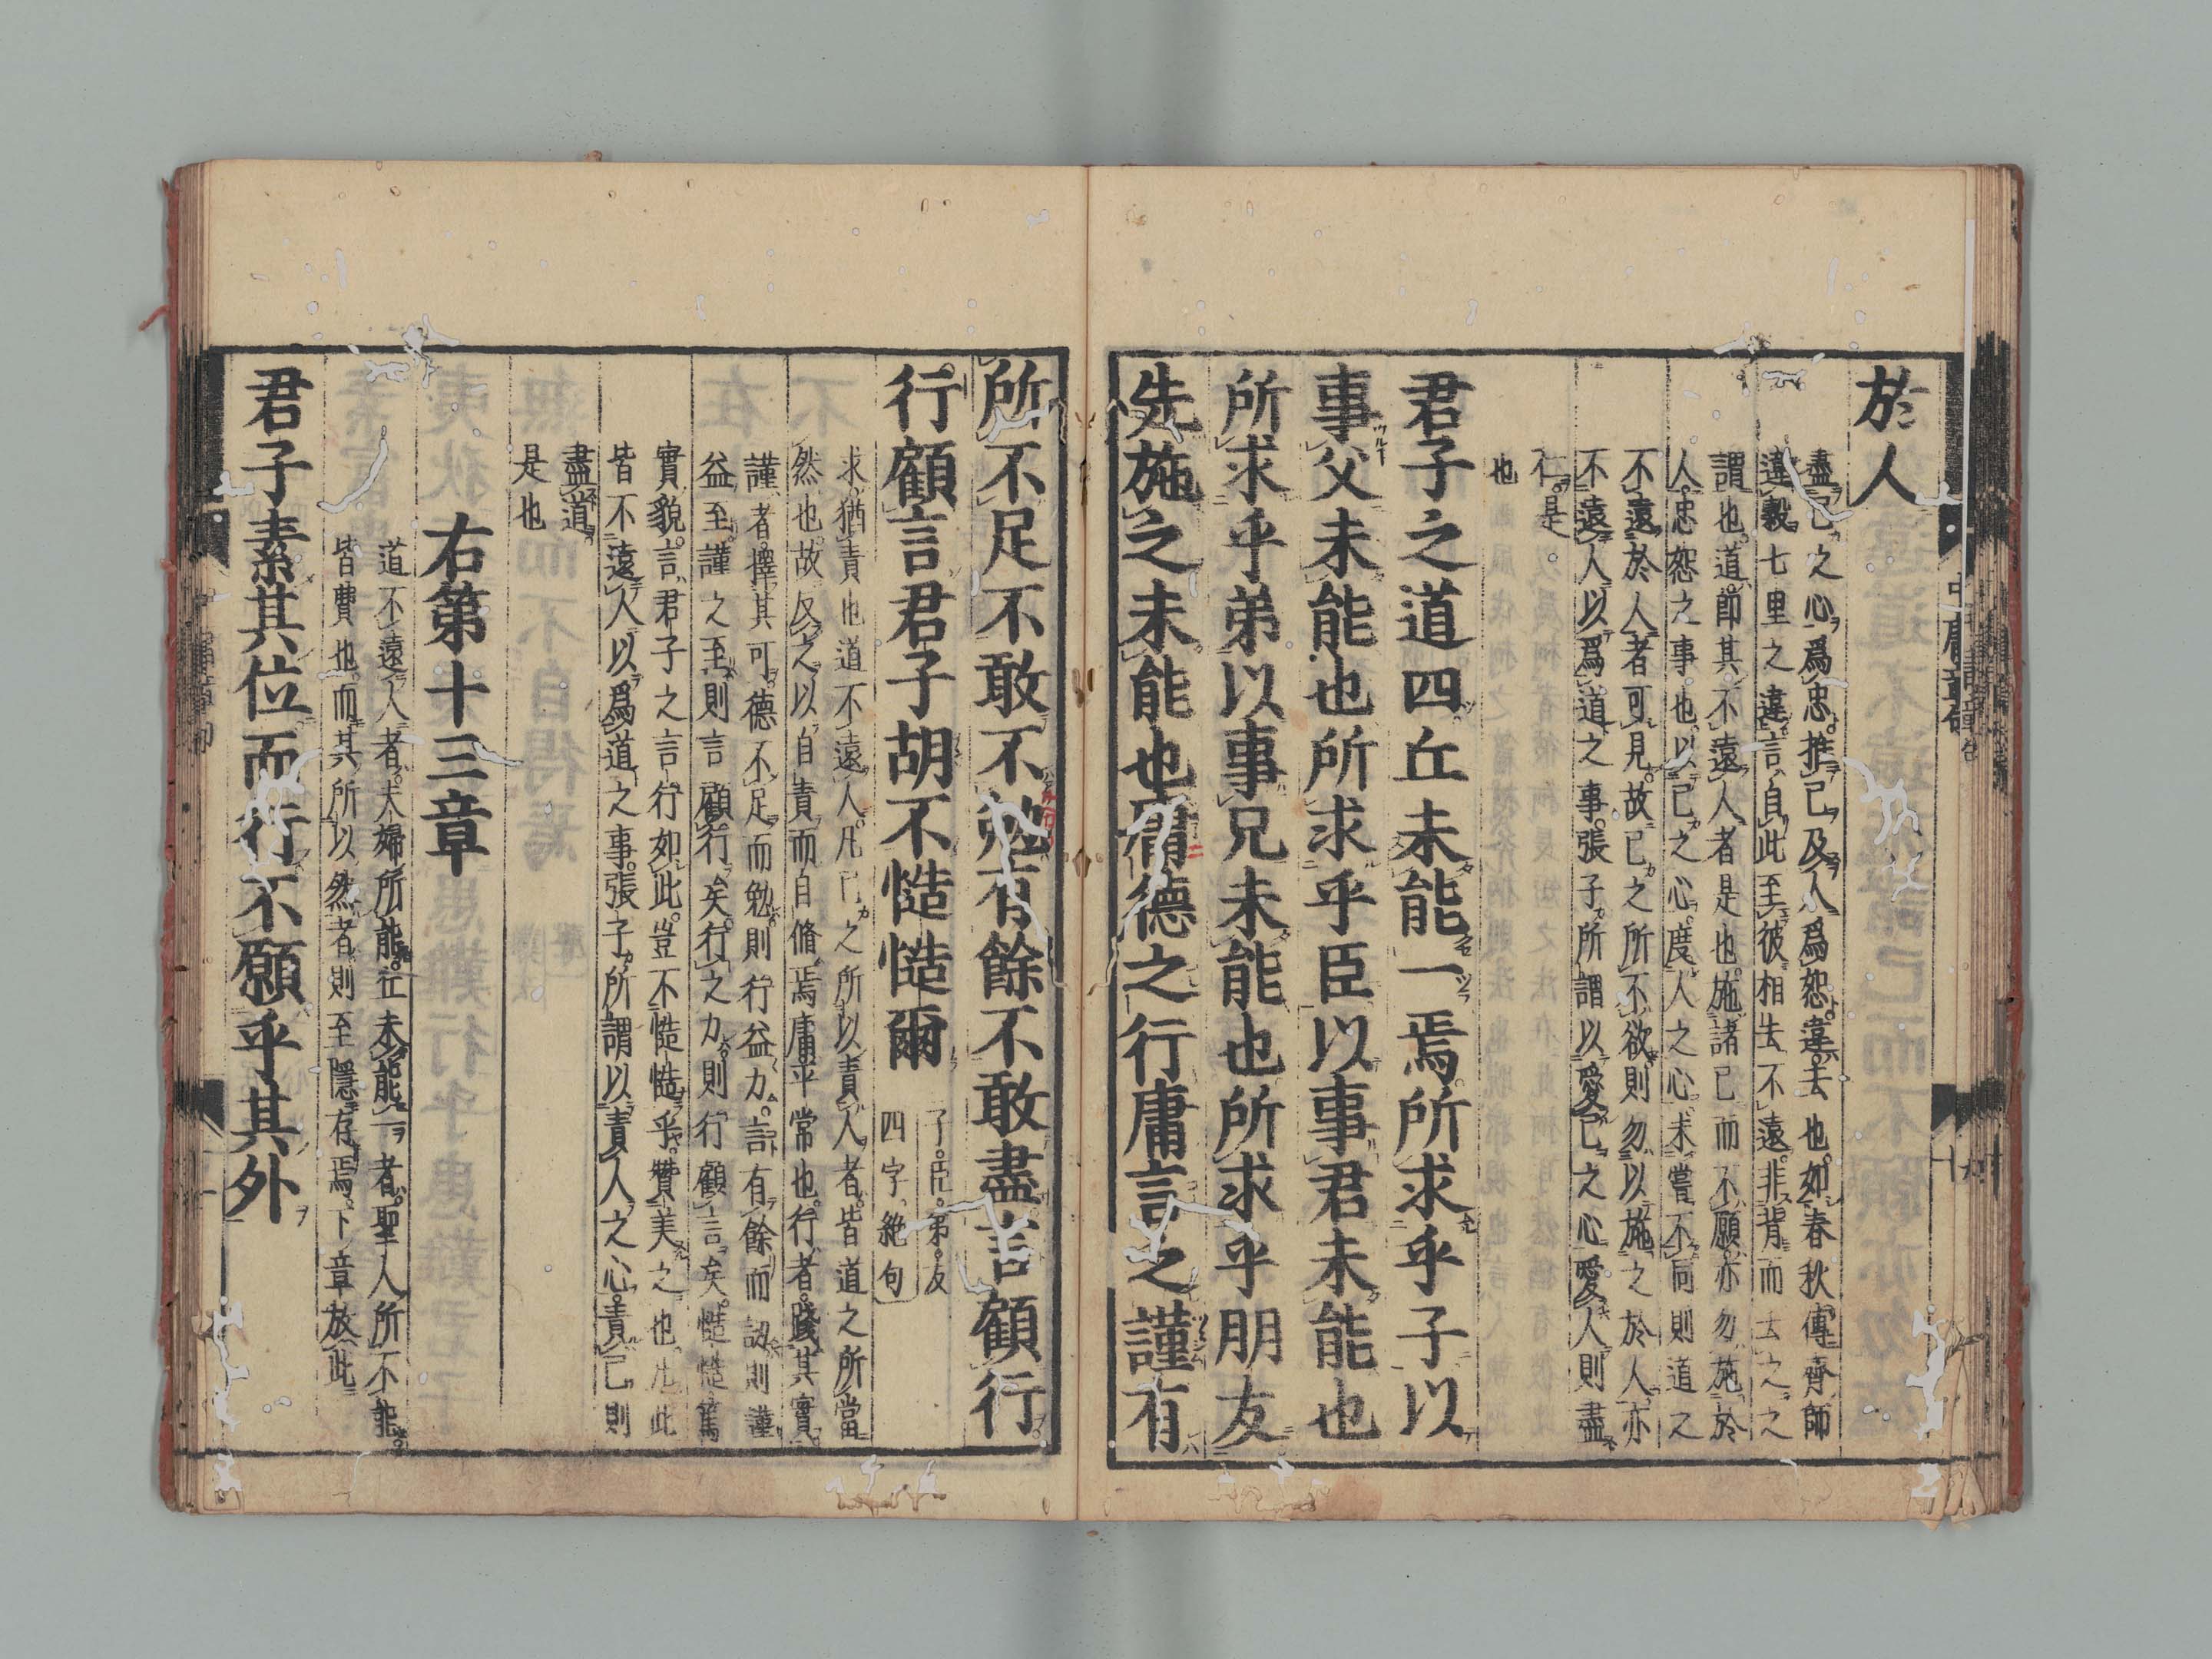 於人
盡己之心爲忠推己及人爲恕違去也如春秋傳齊師
違穀七里之違言自此至彼相去不遠非背而去之之
謂也道即其不遠人者是也施諸己而不願亦勿施於
人忠恕之事也以己之心度人之心未嘗不同則道之
不遠於人者可見故己之所不欲則勿以施之於人亦
不遠人以爲道之事張子所謂以愛己之心愛人則盡
仁是
也
君子之道四丘未能一焉所求乎子以
事父未能也所求乎臣以事君未能也
所求乎弟以事兄未能也所求乎朋友
先施之未能也庸德之行庸言之謹有
所不足不敢不勉有餘不敢盡言顧行
行顧言君子胡不慥慥爾
子臣弟友
四字絶句
求猶責也道不遠人凡己之所以責人者皆道之所當
然也故反之以自責而自脩焉庸平常也行者踐其實
謹者擇其可德不足而勉則行益力言有餘而訒則謹
益至謹之至則言顧行矣行之力則行顧言矣慥慥篤
實貌言君子之言行如此豈不慥慥乎贊美之也凡此
皆不遠人以爲道之事張子所謂以責人之心責己則
盡道
是也
右第十三章
道不遠人者夫婦所能丘未能一者聖人所不能
皆費也而其所以然者則至隱存焉下章放此
君子素其位而行不願乎其外